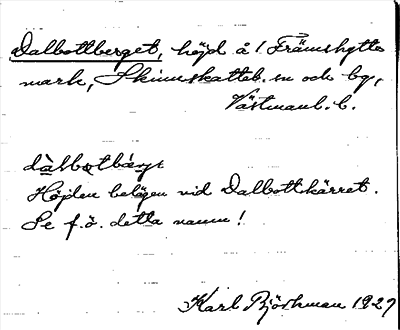 Dalbottberget, höjd å /. Främshytte
mark, Skinnskatteb. sn och bg,
Västmanl. l.
dàlbotbǽrjt
Höjden belägen vid Dalbottskärret.
Se f.ö. detta namn!
Karl Björkman 1927